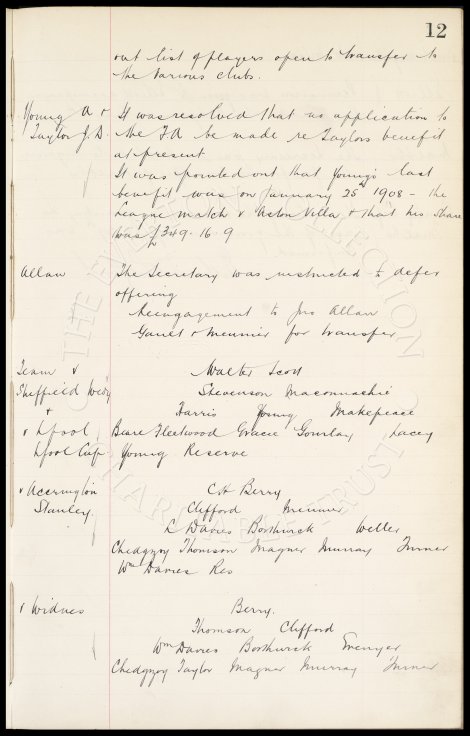 12
out list of players open to transfer to
the various clubs.
Young A & It was resolved that no application to
Taylor J.D. the FA be made re Taylors benefit
at present
It was pointed out that Youngs last
benefit was on January 25th 1908 – the
League match v Aston Villa & that his share
was £349.16.9
Allan The Secretary was instructed to defer
offering
Reengagement to Jno Allan
Gault & Meunier for transfer
Team v Walter Scott
Sheffield Wedy Stevenson Maconnachie
+ Harris Young Makepeace
v Lpool Beare Fleetwood Gracie Gourlay Lacey
Lpool Cup Young Reserve
v Accrington C H Berry
Stanley Clifford Meunier
L Davies Borthwick Weller
Chedgzoy Thomson Magner Murray Turner
Wm Davies Res
v Widnes Berry.
Thomson Clifford
Wm Davies Borthwick Grenyer
Chedgzoy Taylor Magner Murray Turner
THE EVERTON COLLECTION
CHARITABLE TRUST